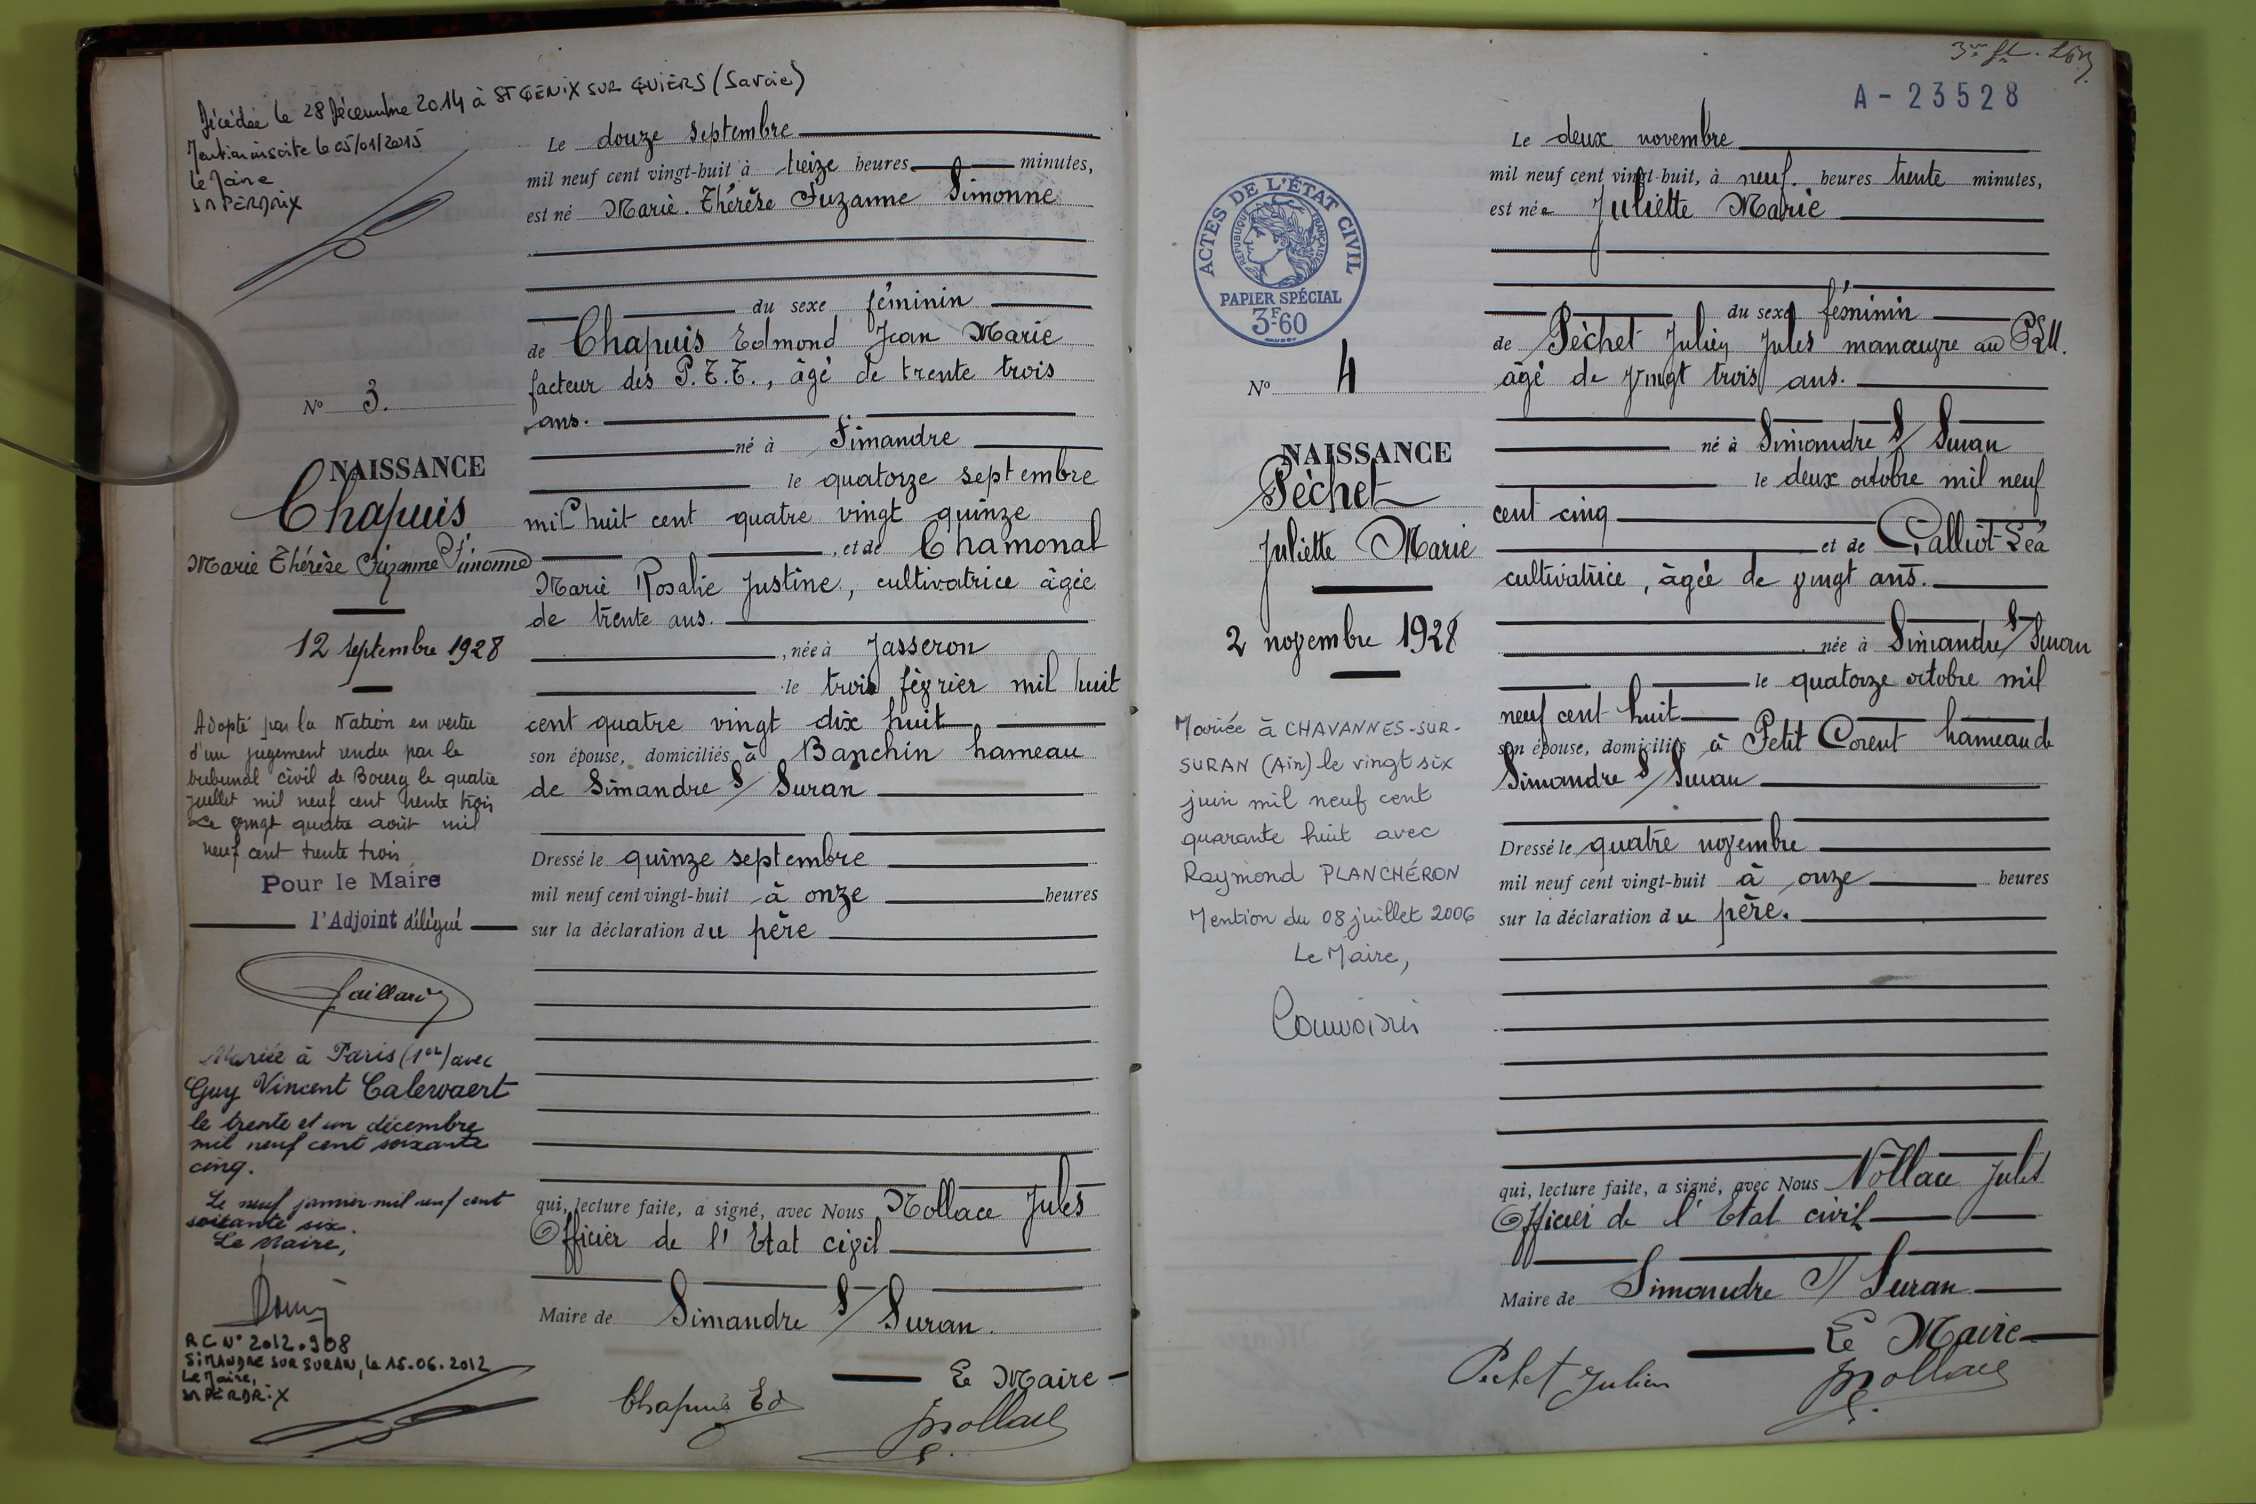 Décédée le 28 Décembre 2014 à ST GENIX SUR GUIERS (Savoie)
Mention inscrite le 05/01/2015
Le Maire
JM PERDRIX
N° 3.
NAISSANCE
Chapuis
Marie Thérèse Suzanne Simonne
12 septembre 1928
Adopté par la Nation en vertu
d'un jugement rendu par le
tribunal civil de Bourg le quatre
juillet mil neuf cent trente trois
Le vingt quatre août mil
neuf cent trente trois
Pour le Maire
l'Adjoint délégué
Mariée à Paris (1er) avec
Guy Vincent Calewaert
le trente et un décembre
mil neuf cent soixante
cinq.
Le neuf janvier mil neuf cent
soixante six.
Le Maire,
RC N° 2012.908
SIMANDRE SUR SURAN, le 15.06.2012
Le Maire,
JM PERDRIX
Le douze septembre
mil neuf cent vingt-huit à treize heures minutes,
est né Marie. Thérèse Suzanne Simonne
du sexe féminin
de Chapuis Edmond Jean Marie
facteur des P.T.T., âgé de trente trois
ans.
né à Simandre
le quatorze septembre
mil huit cent quatre vingt quinze
, et de Chamonal
Marie Rosalie Justine, cultivatrice âgée
de trente ans.
, née à Jasseron
le trois février mil huit
cent quatre vingt dix huit
son épouse, domiciliés à Banchin hameau
de Simandre S/ Suran
Dressé le quinze septembre
mil neuf cent vingt-huit à onze heures
sur la déclaration du père
qui, lecture faite, a signé, avec Nous Nollace Jules
Officier de l'Etat civil
Maire de Simandre S/ Suran.
Le Maire
Chapuis Ed
Nollace
A - 23528
ACTES DE L'ÉTAT CIVIL
RÉPUBLIQUE FRANÇAISE
PAPIER SPÉCIAL
3F60
N° 4
NAISSANCE
Pèchet
Juliette Marie
2 novembre 1928
Mariée à CHAVANNES-SUR-
SURAN (Ain) le vingt six
juin mil neuf cent
quarante huit avec
Raymond PLANCHÉRON
Mention du 08 juillet 2006
Le Maire,
Le deux novembre
mil neuf cent vingt-huit, à neuf. heures trente minutes,
est née Juliette Marie
du sexe féminin
de Pèchet Julien Jules manœuvre au PLM.
âgé de vingt trois ans.
né à Simandre S/ Suran
le deux octobre mil neuf
cent cinq
et de Galliot Léa
cultivatrice, âgée de vingt ans.
née à Simandre S/ Suran
le quatorze octobre mil
neuf cent huit
son épouse, domiciliés à Petit Corent hameau de
Simandre S/ Suran
Dressé le quatre novembre
mil neuf cent vingt-huit à onze heures
sur la déclaration du père.
qui, lecture faite, a signé, avec Nous Nollace Jules
Officier de l'Etat civil
Maire de Simandre S/ Suran
Le Maire
Pechet Julien
Nollace